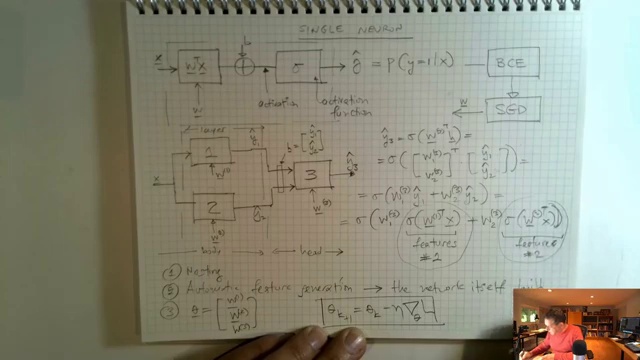 SINGLE NEURON
b
x → wᵀx → + → σ → ŷ = p(y=1|x) — BCE
w
activation
activation function
w ← SED
layer
ŷ₁
h = [ŷ₁ ŷ₂]
x
1
w⁽¹⁾
2
w⁽²⁾
ŷ₂
3
w⁽³⁾
ŷ₃
head
ŷ₃ = σ(w⁽³⁾ᵀ h)
= σ([w₁⁽³⁾ w₂⁽³⁾]ᵀ [ŷ₁ ŷ₂]) =
= σ(w₁⁽³⁾ ŷ₁ + w₂⁽³⁾ ŷ₂) =
= σ(w₁⁽³⁾ σ(w⁽¹⁾ᵀx) + w₂⁽³⁾ σ(w⁽²⁾ᵀx))
features
features
#2
① Nesting
② Automatic feature generation → the network itself built
③ θ = [w⁽¹⁾ w⁽²⁾ w⁽³⁾]
θₖ₊₁ = θₖ − η∇θL